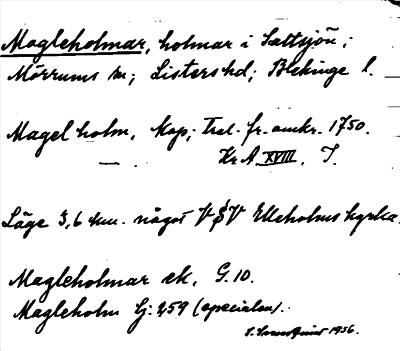 Magleholmar, holmar i Saltsjön;
Mörrums sn; Listers hd; Blekinge l.
Magelholm, Kop; Tral. fr. omkr. 1750.
— . Kr A XVIII. J.
Läge 3,6 km. något V S V Elleholms kyrka.
Magleholmar ek. G. 10.
Magleholm Gj: 259 (specialen).
1956.